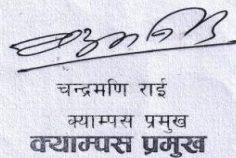 चन्द्रमणि राई
क्याम्पस प्रमुख
क्याम्पस प्रमुख